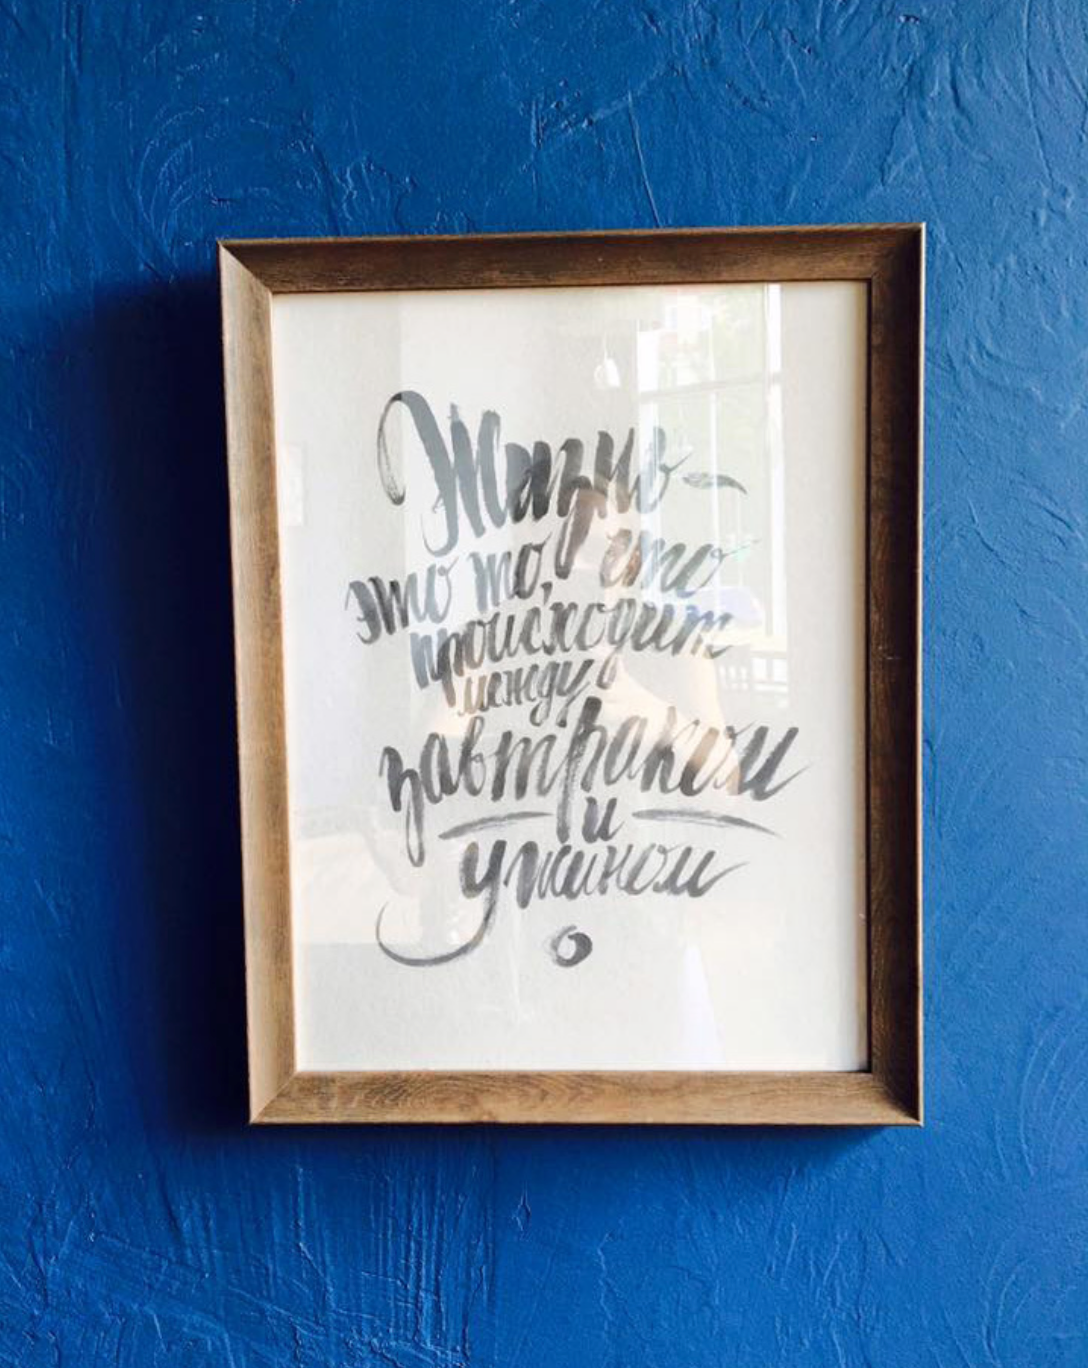 Жизнь —
это то, что
происходит
между
завтраком
и
ужином